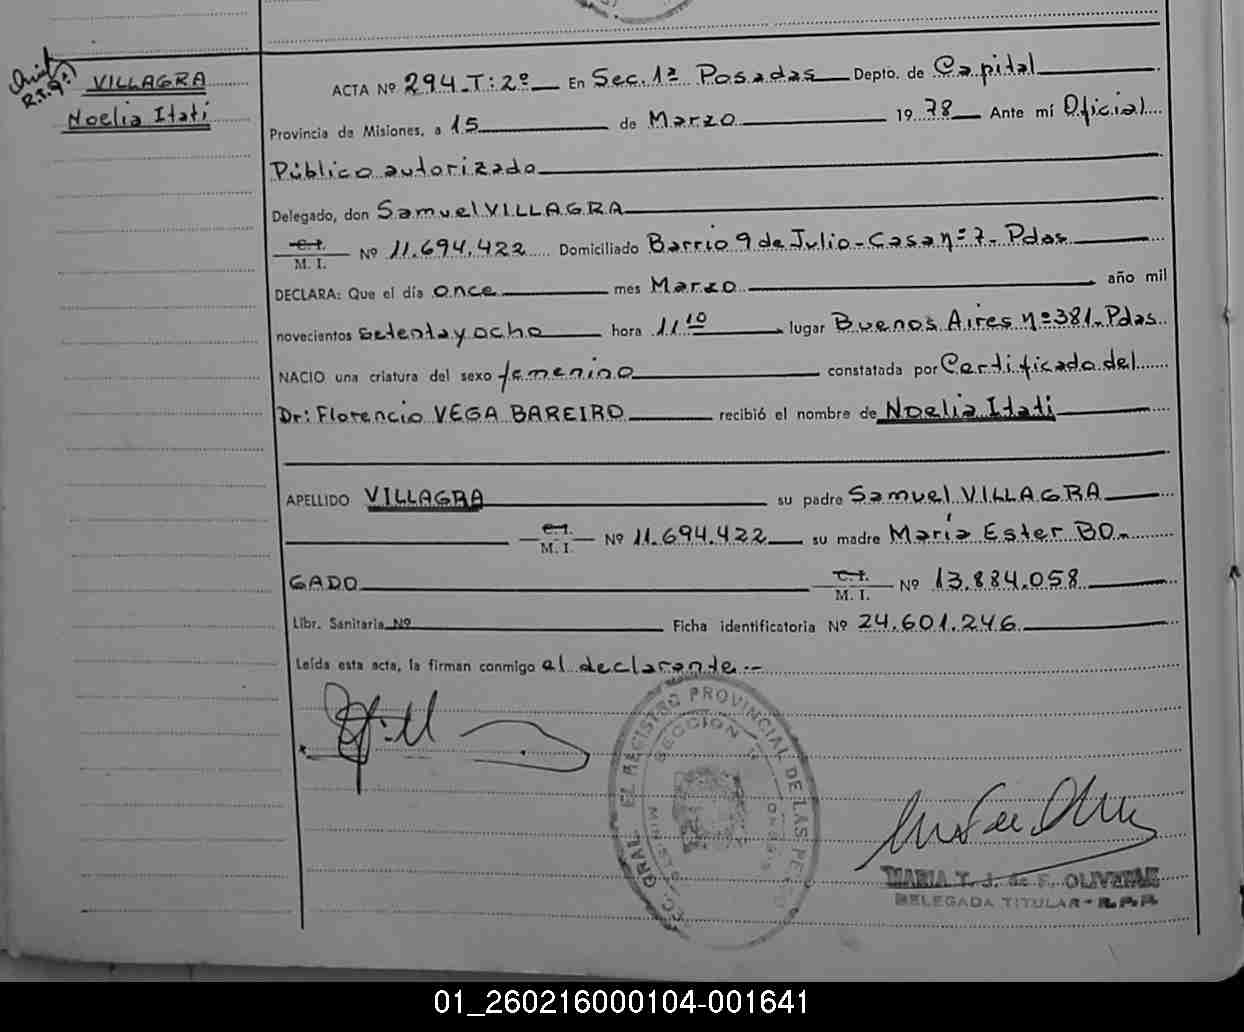 VILLAGRA
Noelia Itatí
ACTA Nº 294.T:2º En Sec. 1ª Posadas Depto. de Capital
Provincia de Misiones, a 15 de Marzo 1978 Ante mí Oficial
Público autorizado
Delegado, don Samuel VILLAGRA
C.I. M. I. Nº 11.694.422 Domiciliado Barrio 9 de Julio - Casa nº 7 - Pdas
DECLARA: Que el día once mes Marzo año mil
novecientos setenta y ocho hora 11 10 lugar Buenos Aires nº 381 - Pdas
NACIO una criatura del sexo femenino constatada por Certificado del
Dr: Florencio VEGA BAREIRO recibió el nombre de Noelia Itatí
APELLIDO VILLAGRA su padre Samuel VILLAGRA
C.I. M. I. Nº 11.694.422 su madre María Ester BO-
GADO C.I. M. I. Nº 13.884.058
Libr. Sanitaria Nº Ficha identificatoria Nº 24.601.246
Leída esta acta, la firman conmigo el declarante.-
GRAL. EL REGISTRO PROVINCIAL DE LAS
SECCION 1ª
MISIONES
MARIA T. J. de F. OLIVERAE
DELEGADA TITULAR - R.P.P.
01_260216000104-001641